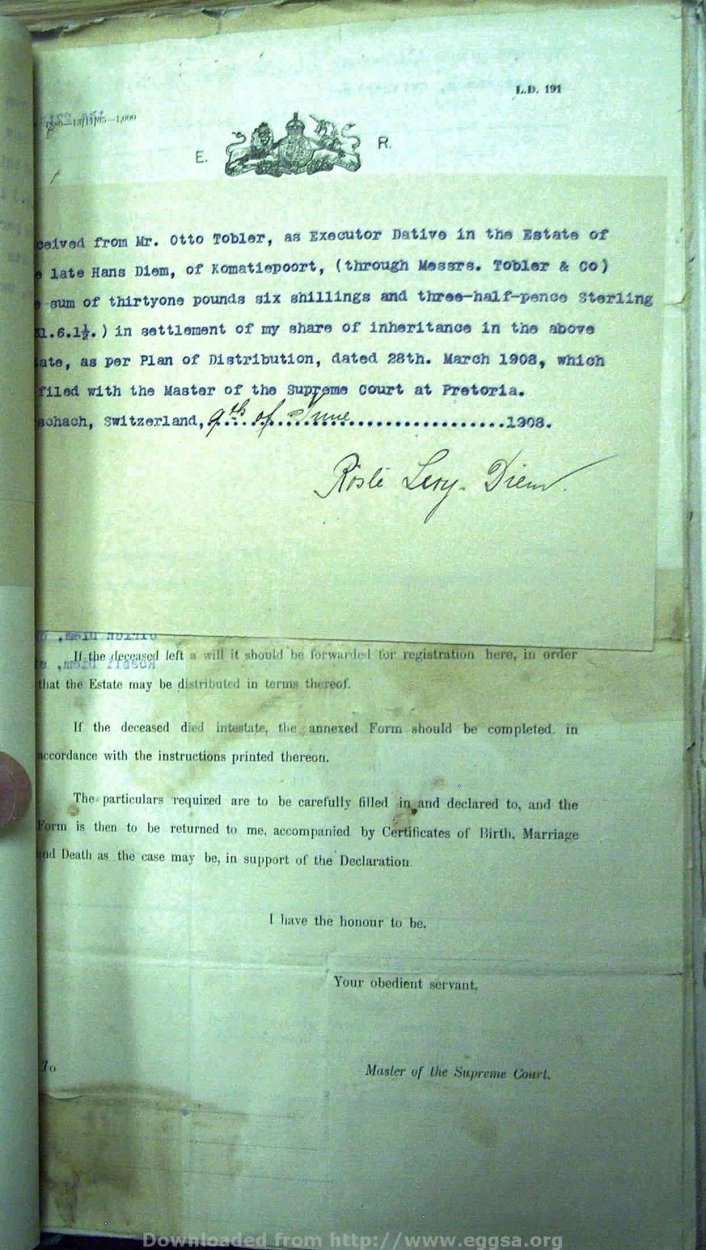 L.D. 191
E. R.
ceived from Mr. Otto Tobler, as Executor Dative in the Estate of
late Hans Diem, of Komatiepoort, (through Messrs. Tobler & Co)
sum of thirtyone pounds six shillings and three-half-pence Sterling
1.6.1½.) in settlement of my share of inheritance in the above
ate, as per Plan of Distribution, dated 28th. March 1908, which
filed with the Master of the Supreme Court at Pretoria.
schach, Switzerland, 9th of June 1908.
Rösli Levy-Diem.
If the deceased left a will it should be forwarded for registration here, in order
that the Estate may be distributed in terms thereof.
If the deceased died intestate, the annexed Form should be completed, in
accordance with the instructions printed thereon.
The particulars required are to be carefully filled in and declared to, and the
Form is then to be returned to me, accompanied by Certificates of Birth, Marriage
and Death as the case may be, in support of the Declaration.
I have the honour to be,
Your obedient servant,
To
Master of the Supreme Court.
Downloaded from http://www.eggsa.org